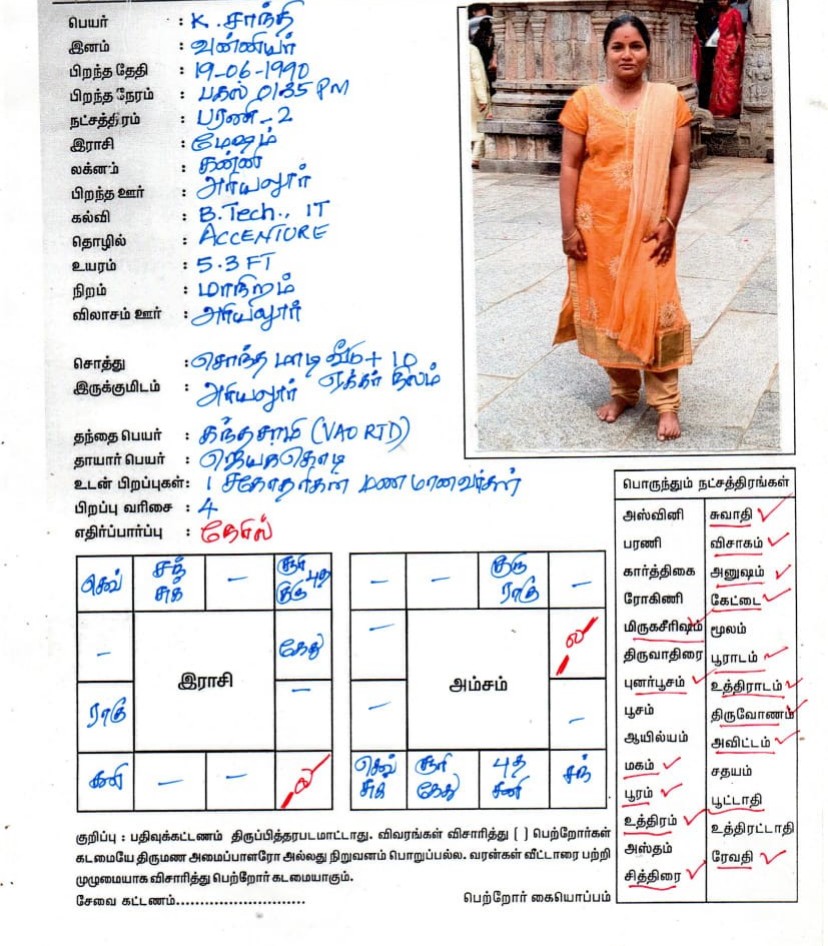 பெயர் : K. சாந்தி
இனம் : வன்னியர்
பிறந்த தேதி : 19-06-1990
பிறந்த நேரம் : பகல் 01.35 PM
நட்சத்திரம் : பரணி - 2
இராசி : மேஷம்
லக்னம் : கன்னி
பிறந்த ஊர் : அரியலூர்
கல்வி : B.Tech., IT
தொழில் : ACCENTURE
உயரம் : 5.3 FT
நிறம் : மாநிறம்
விலாசம் ஊர் : அரியலூர்
சொத்து : சொந்த மாடி வீடு + 10
ஏக்கர் நிலம்
இருக்குமிடம் : அரியலூர்
தந்தை பெயர் : கந்தசாமி (VAO RTD)
தாயார் பெயர் : ஜெயகொடி
உடன் பிறப்புகள் : 1 சகோதரிகள் மணமானவர்கள்
பிறப்பு வரிசை : 4
எதிர்ப்பார்ப்பு : நேரில்
செவ் சந் சுக் – சூரி புத குரு
– கேது
இராசி
ராகு –
சனி – – ல
– – குரு ராகு –
– ல
அம்சம்
– –
செவ் சுக் சூரி கேது புத சனி சந்
பொருந்தும் நட்சத்திரங்கள்
அஸ்வினி சுவாதி ✓
பரணி விசாகம் ✓
கார்த்திகை அனுஷம் ✓
ரோகிணி கேட்டை ✓
மிருகசீரிஷம் ✓ மூலம்
திருவாதிரை பூராடம் ✓
புனர்பூசம் ✓ உத்திராடம் ✓
பூசம் திருவோணம் ✓
ஆயில்யம் அவிட்டம் ✓
மகம் ✓ சதயம்
பூரம் ✓ பூட்டாதி
உத்திரம் ✓ உத்திரட்டாதி
அஸ்தம் ரேவதி ✓
சித்திரை ✓
குறிப்பு : பதிவுக்கட்டணம் திருப்பித்தரபடமாட்டாது. விவரங்கள் விசாரித்து [ ] பெற்றோர்கள்
கடமையே திருமண அமைப்பாளரோ அல்லது நிறுவனம் பொறுப்பல்ல. வரன்கள் வீட்டாரை பற்றி
முழுமையாக விசாரித்து பெற்றோர் கடமையாகும்.
சேவை கட்டணம்.......................... பெற்றோர் கையொப்பம்